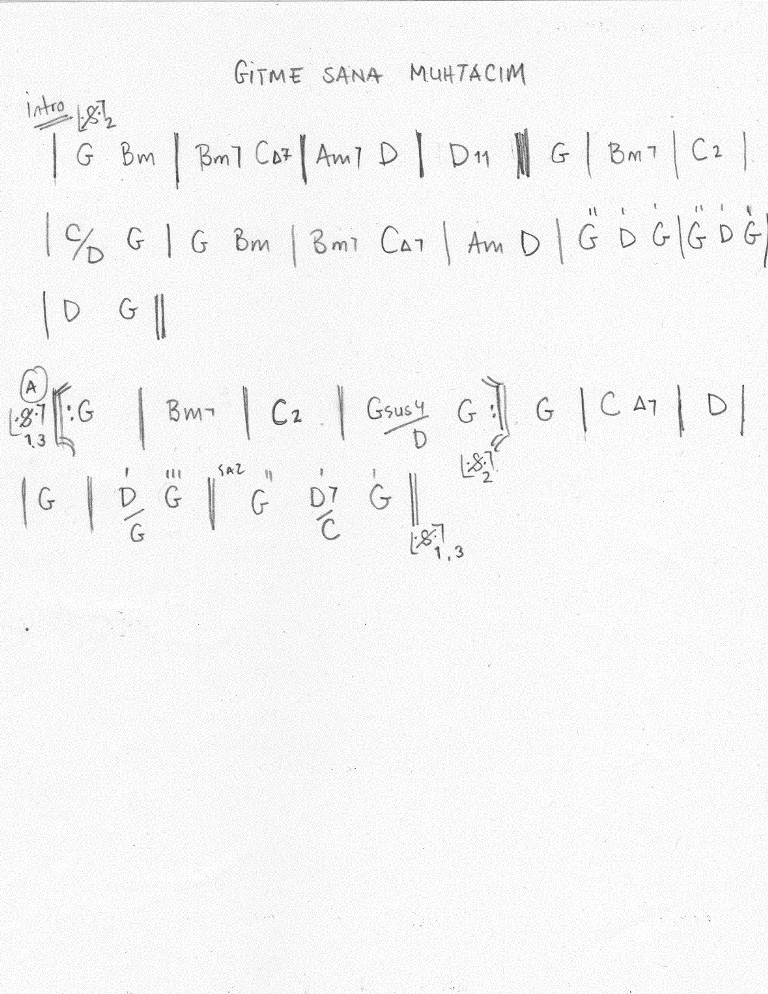 GİTME SANA MUHTACIM
intro
[.S.] 2
| G Bm | Bm7 CΔ7 | Am7 D | D11 || G | Bm7 | C2 |
| C/D G | G Bm | Bm7 CΔ7 | Am D | G'' D' G' | G'' D' G' |
| D G ||
A
[.S.] 1,3 ||: G | Bm7 | C2 | Gsus4/D G :|| G | CΔ7 | D |
[.S.] 2
| G | D'/G G''' || SAZ G'' D7'/C G' ||
[.S.] 1,3